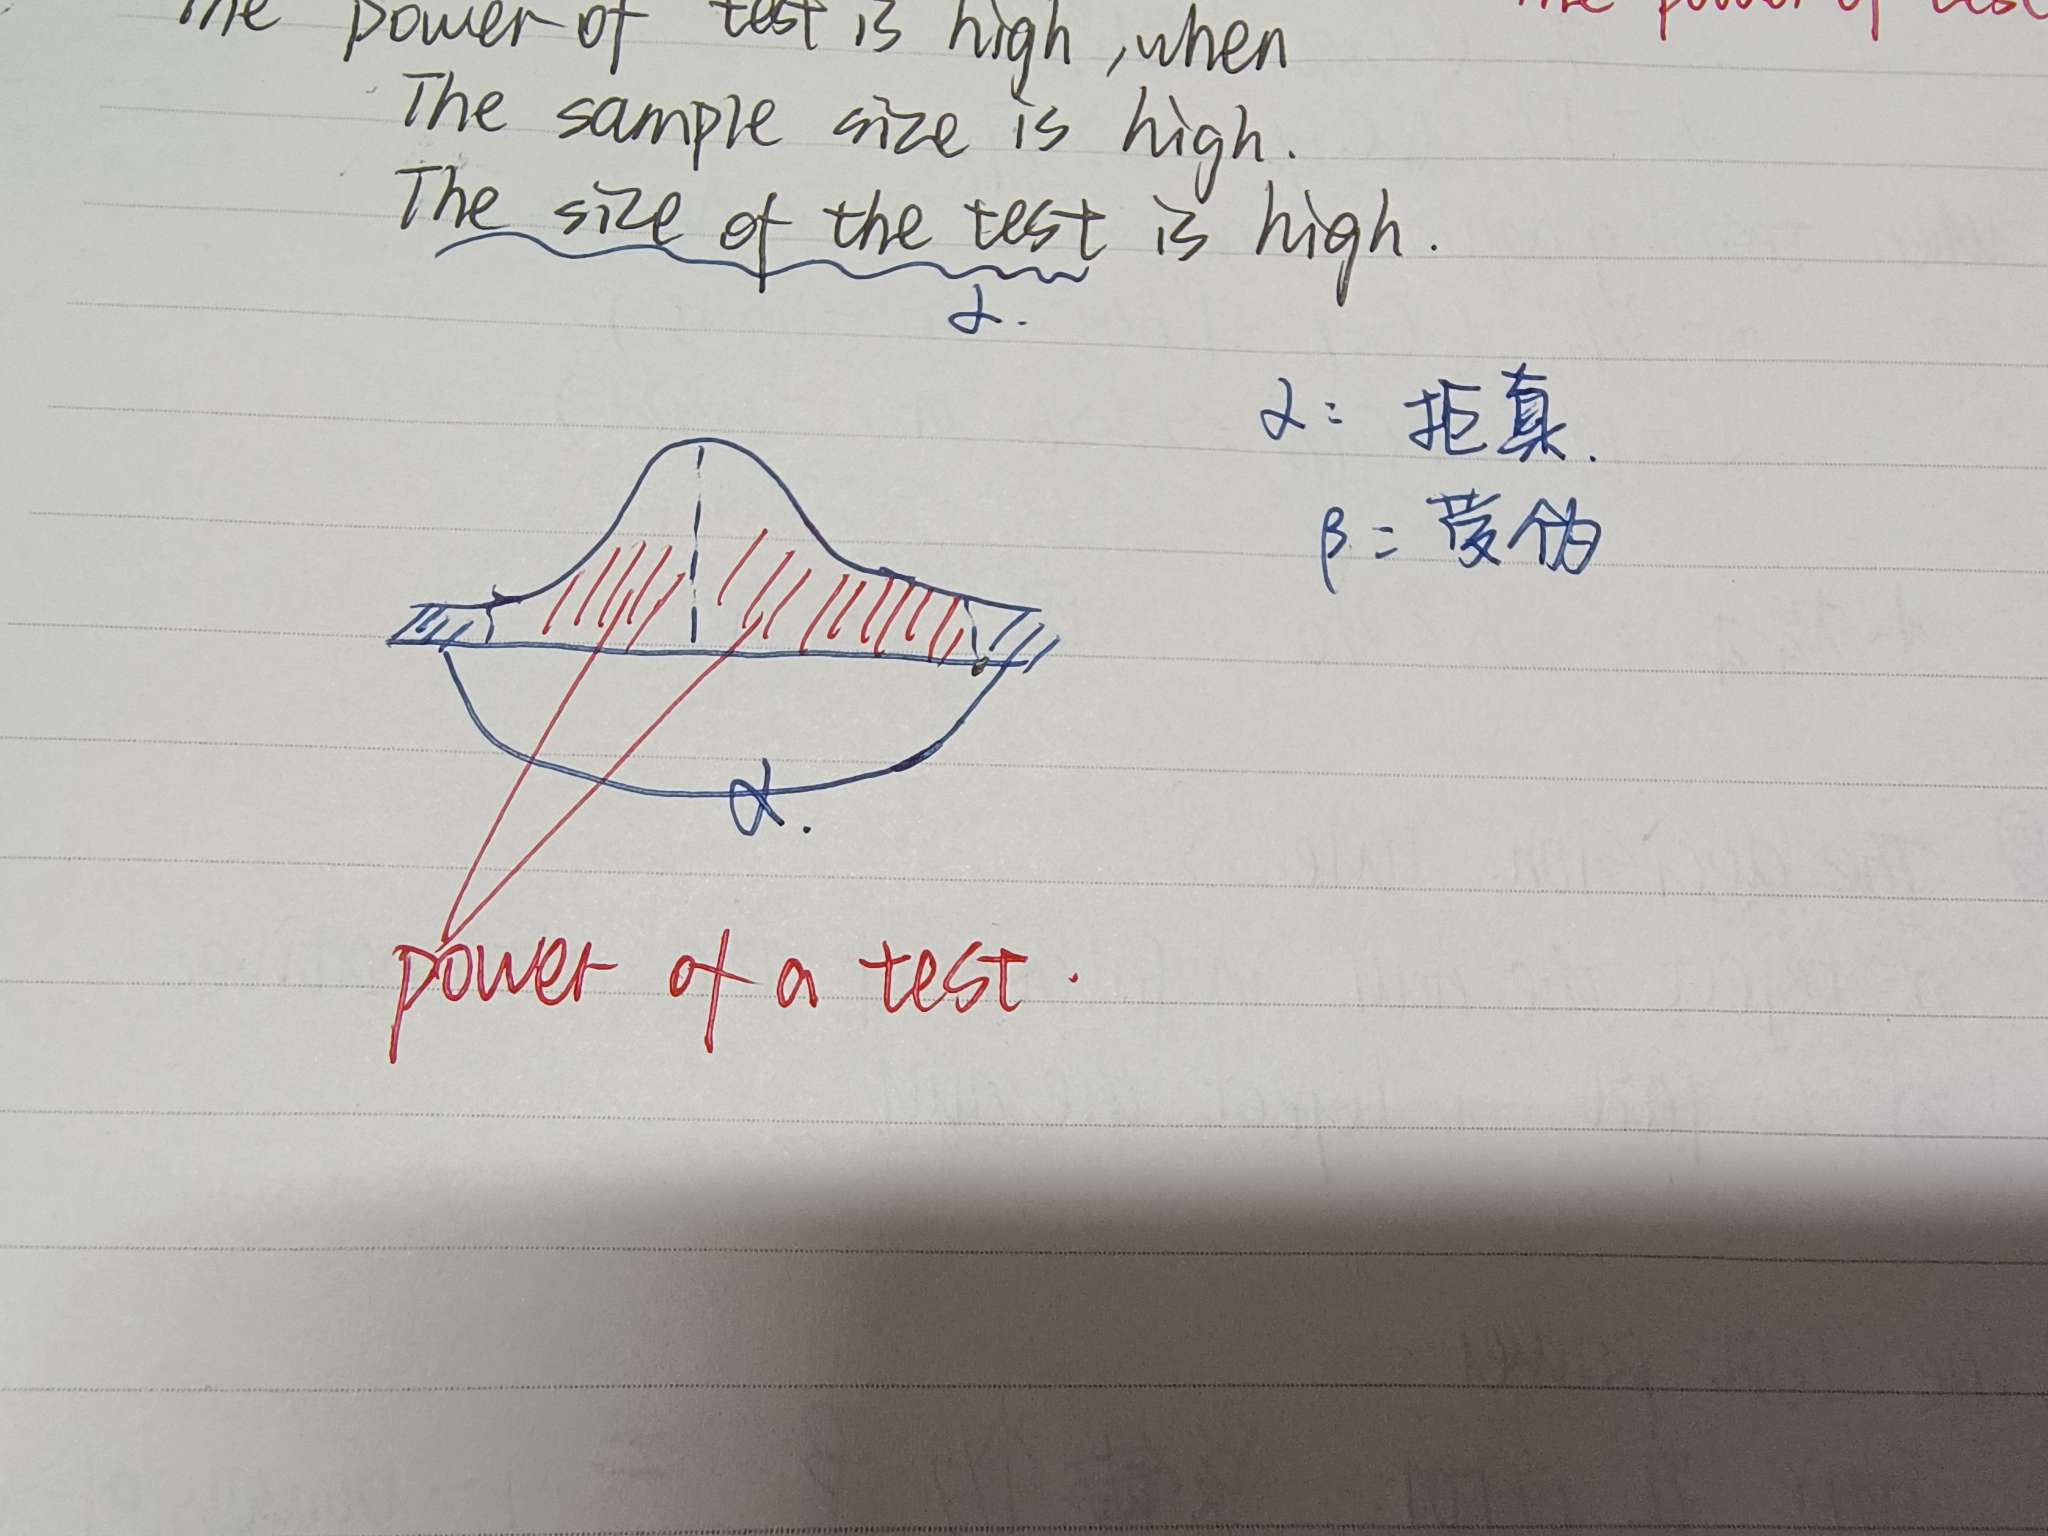 The power of test is high, when
The power of test
The sample size is high.
The size of the test is high.
α.
α = 拒真.
β = 受伪
α.
power of a test.